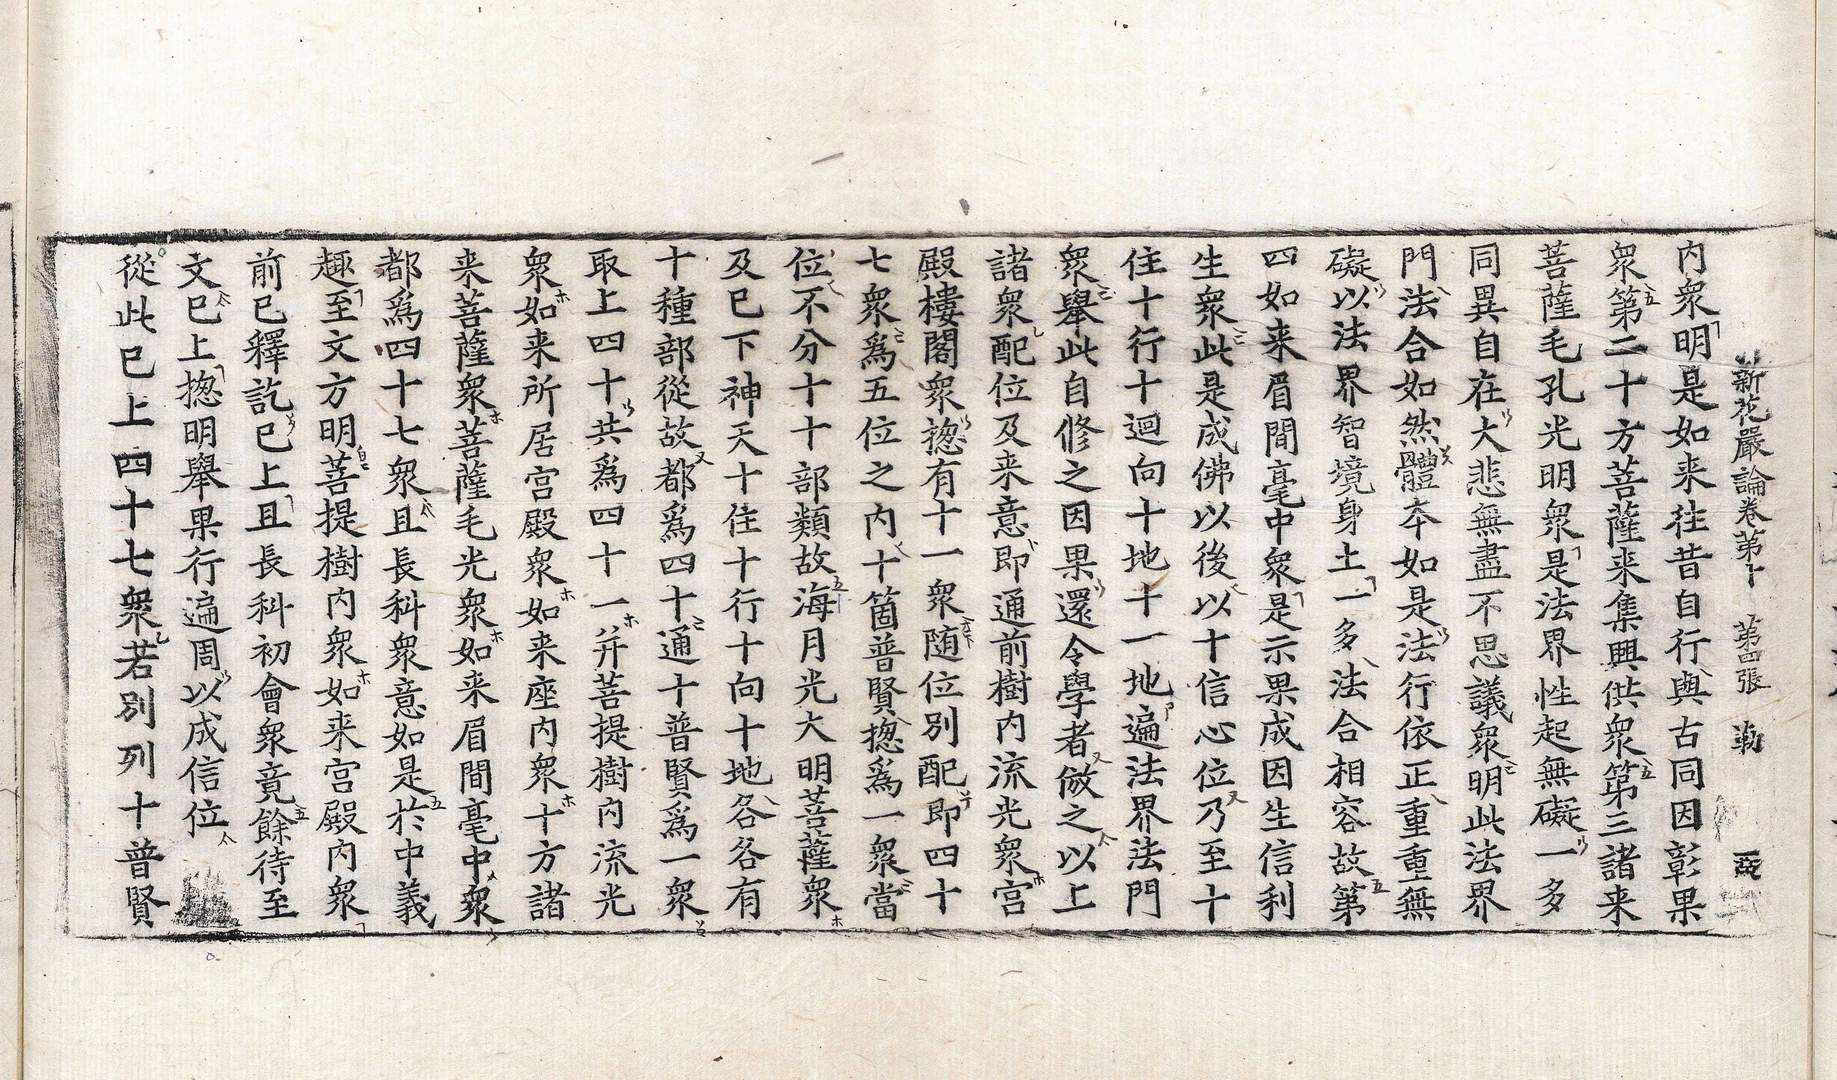 新花嚴論卷第十　第四張　勒
内衆明是如来往昔自行與古同因彰果
衆第二十方菩薩来集興供衆第三諸来
菩薩毛孔光明衆是法界性起無礙一多
同異自在大悲無盡不思議衆明此法界
門法合如然體夲如是法行依正重重無
礙以法界智境身土一多法合相容故第
四如来眉間毫中衆是示果成因生信利
生衆此是成佛以後以十信心位乃至十
住十行十迴向十地十一地遍法界法門
衆舉此自修之因果還令學者倣之以上
諸衆配位及来意即通前樹内流光衆宫
殿樓閣衆揔有十一衆随位別配即四十
七衆爲五位之内十箇普賢揔爲一衆當
位不分十十部類故海月光大明菩薩衆
及已下神天十住十行十向十地各各有
十種部從故都爲四十通十普賢爲一衆
取上四十共爲四十一并菩提樹内流光
衆如来所居宫殿衆如来座内衆十方諸
来菩薩衆菩薩毛光衆如来眉間毫中衆
都爲四十七衆且長科衆意如是於中義
趣至文方明菩提樹内衆如来宫殿内衆
前已釋訖已上且長科初會衆竟餘待至
文已上揔明舉果行遍周以成信位
從此已上四十七衆若別列十普賢